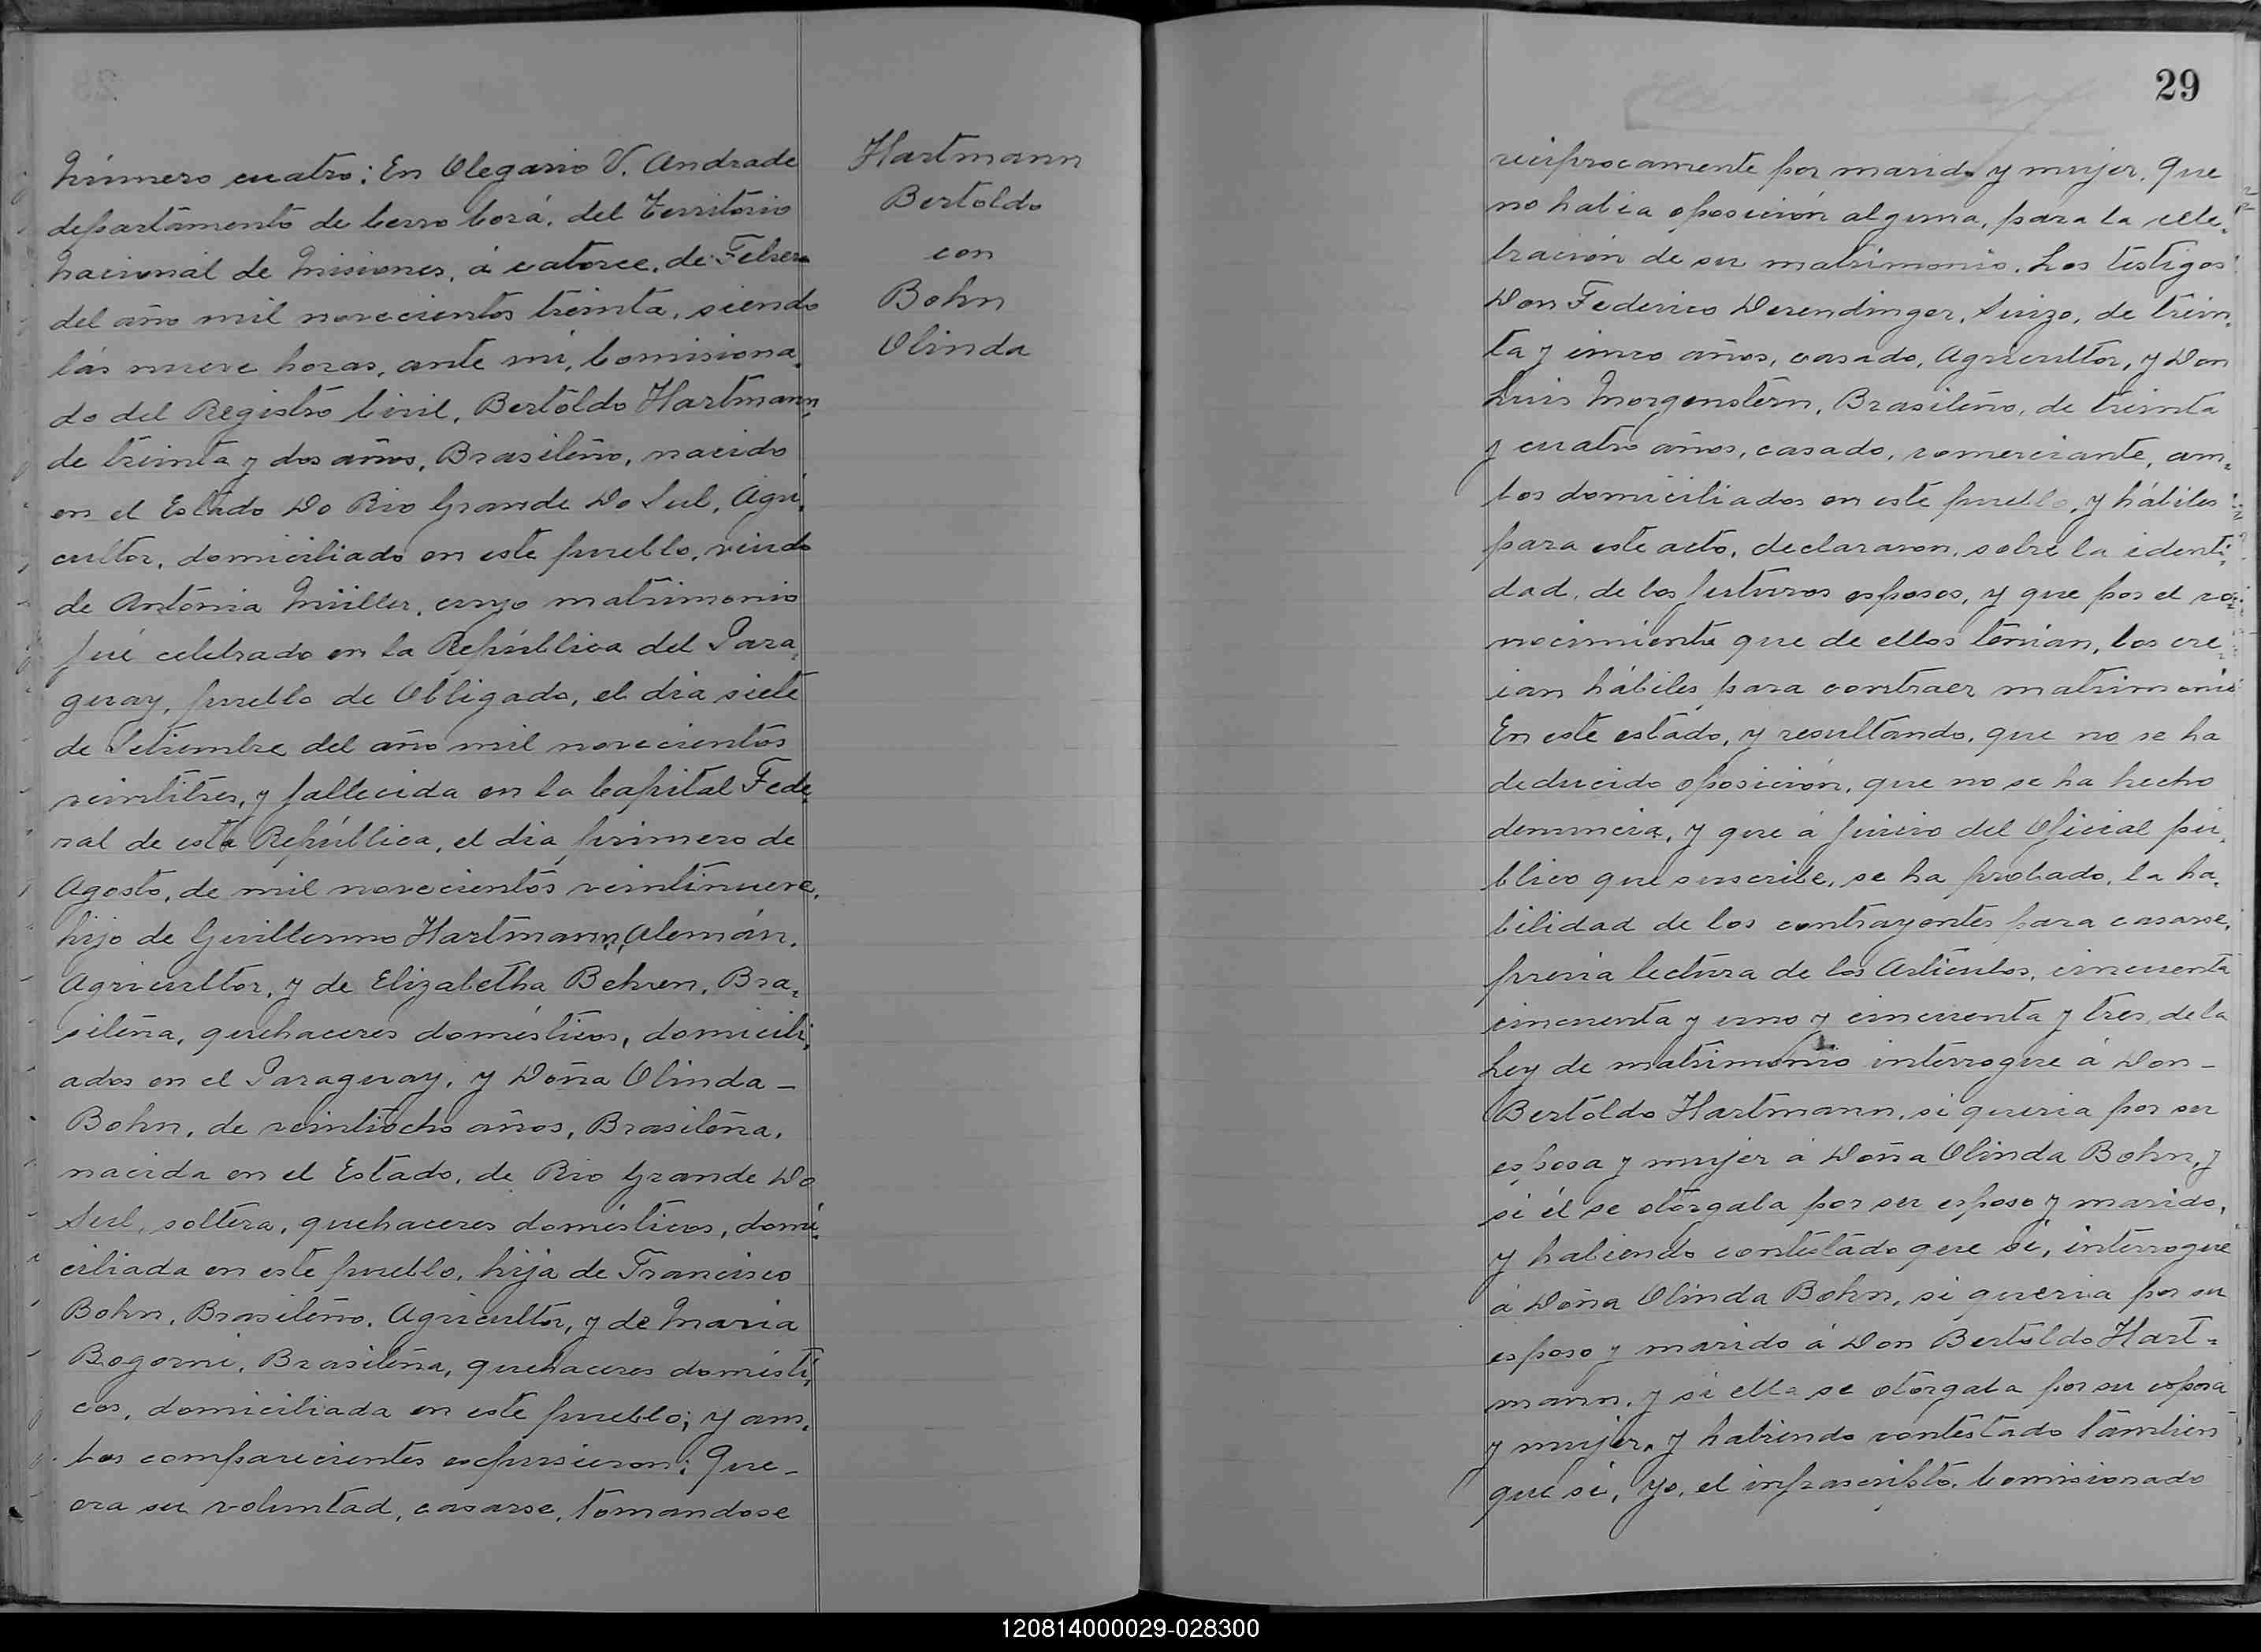 Número cuatro: En Olegario V. Andrade
departamento de Cerro Corá, del Territorio
Nacional de Misiones, á catorce, de Febrero
del año mil novecientos treinta, siendo
las nueve horas, ante mi, Comisiona,
do del Registro Civil, Bertoldo Hartmann,
de treinta y dos años, Brasileño, nacido
en el Estado Do Rio Grande Do Sul, Agri,
cultor, domiciliado en este pueblo, viudo
de Antonia Müller, cuyo matrimonio
fué celebrado en la República del Para,
guay, pueblo de Obligado, el dia siete
de Setiembre del año mil novecientos
veintitres, y fallecida en la Capital Fede,
ral de esta República, el dia primero de
Agosto, de mil novecientos veintinueve,
hijo de Guillermo Hartmann, Alemán,
Agricultor, y de Elizabetha Behren, Bra,
sileña, quehaceres domésticos, domicili,
ados en el Paraguay, y Doña Olinda -
Bohn, de veintiocho años, Brasileña,
nacida en el Estado, de Rio Grande Do
Sul, soltera, quehaceres domésticos, domi,
ciliada en este pueblo, hija de Francisco
Bohn, Brasileño, Agricultor, y de Maria
Bogorni, Brasileña, quehaceres domésti,
cos, domiciliada en este pueblo; y am,
bos comparecientes expusieron: Que -
era su voluntad, casarse, tomandose
Hartmann
Bertoldo
con
Bohn
Olinda
29
reciprocamente por marido y mujer. Que
no habia oposición alguna, para la cele,
bración de su matrimonio. Los testigos
Don Federico Derendinger, Suizo, de trein,
ta y cinco años, casado, Agricultor, y Don
Luis Morgenstern, Brasileño, de treinta
y cuatro años, casado, comerciante, am,
bos domiciliados en este pueblo, y hábiles
para este acto, declararon, sobre la identi,
dad, de los futuros esposos, y que por el co,
nocimiento que de ellos tenian, los cre,
ian hábiles para contraer matrimonio
En este estado, y resultando, que no se ha
deducido oposición, que no se ha hecho
denuncia, y que á juicio del Oficial pú,
blico que suscribe, se ha probado, la ha,
bilidad de los contrayentes para casarse,
previa lectura de los Articulos, cincuenta
cincuenta y uno y cincuenta y tres, de la
Ley de matrimonio interrogue á Don -
Bertoldo Hartmann, si queria por su
esposa y mujer á Doña Olinda Bohn, y
si él se otorgaba por su esposo y marido,
y habiendo contestado que si, interrogue
á Doña Olinda Bohn, si queria por su
esposo y marido á Don Bertoldo Hart-
mann, y si ella se otorgaba por su esposa
y mujer, y habiendo contestado tambien
que si, yo, el infrascripto, Comisionado
120814000029-028300